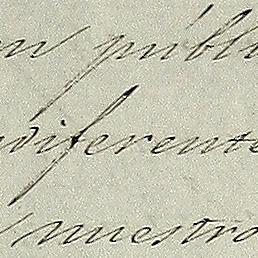 on públi
ndiferente
nuestro